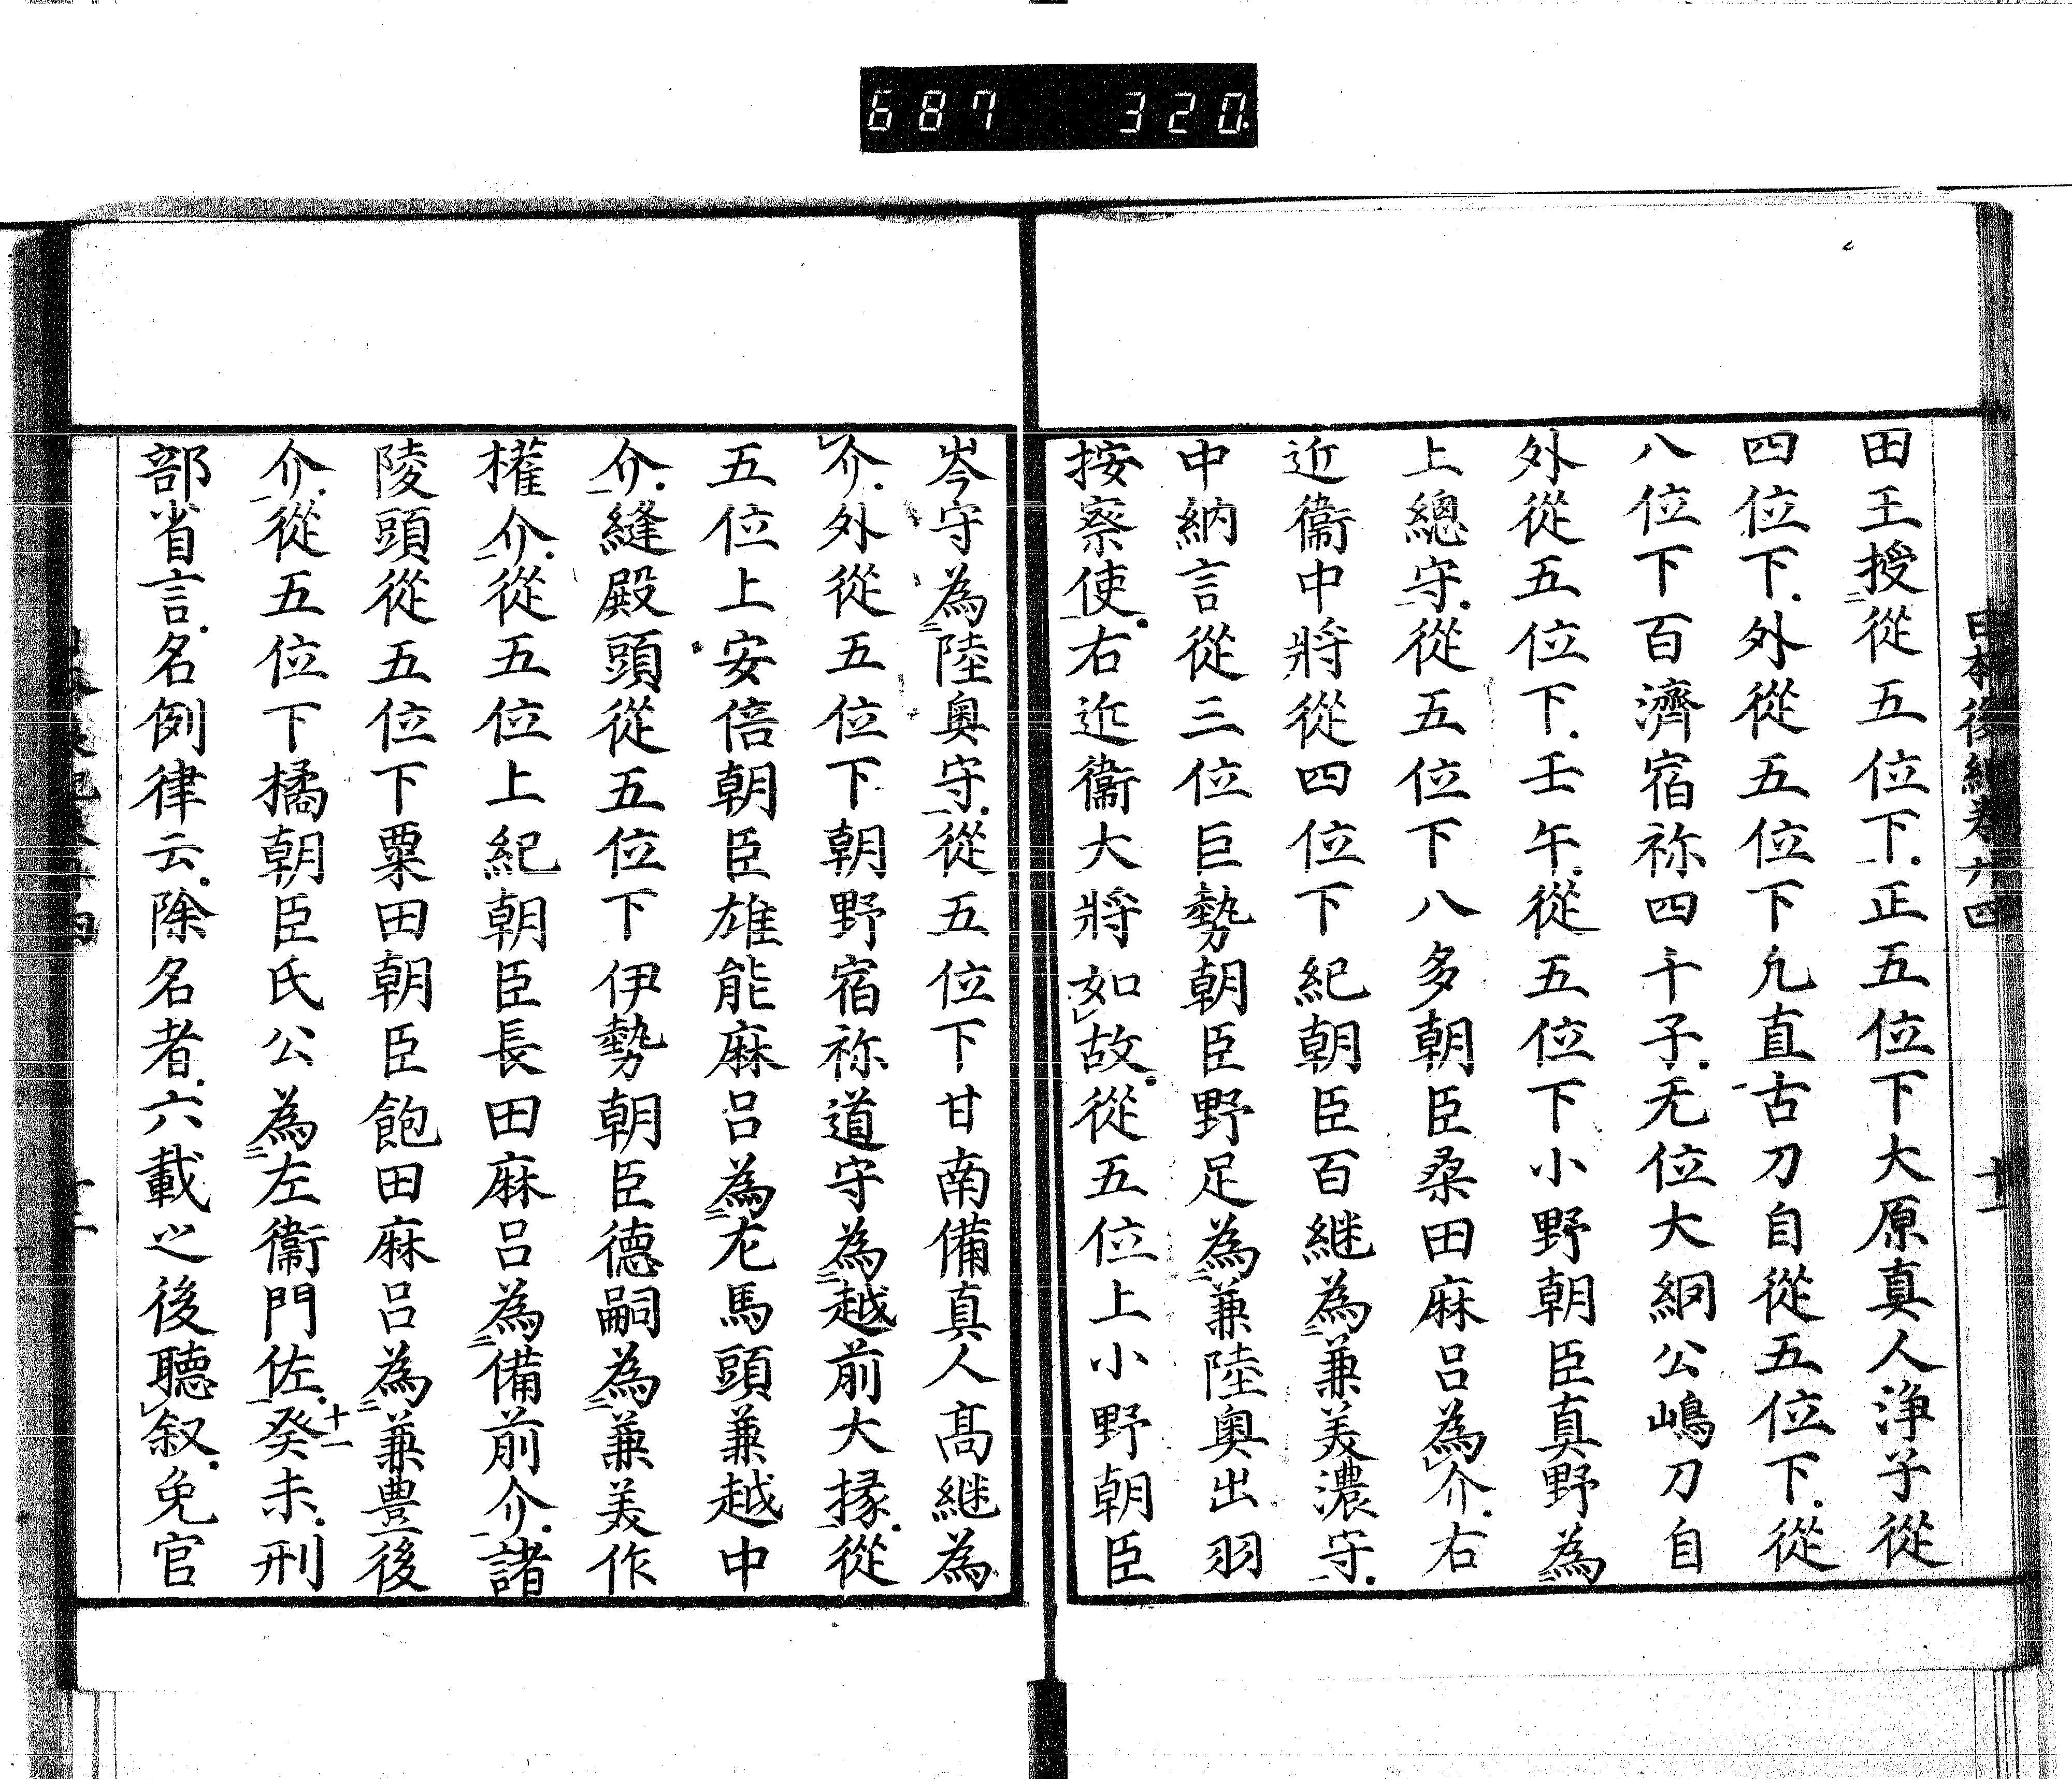 687 320
日本後紀卷廿四 十一
田王授從五位下正五位下大原真人淨子從
四位下外從五位下凢直古刀自從五位下從
八位下百濟宿祢四千子无位大網公嶋刀自
外從五位下壬午從五位下小野朝臣真野為
上總守從五位下八多朝臣桑田麻呂為介右
近衞中將從四位下紀朝臣百継為兼美濃守
中納言從三位巨勢朝臣野足為兼陸奧出羽
按察使右近衞大將如故從五位上小野朝臣
岑守為陸奧守從五位下甘南備真人髙継為
介外從五位下朝野宿祢道守為越前大掾從
五位上安倍朝臣雄能麻呂為左馬頭兼越中
介縫殿頭從五位下伊勢朝臣德嗣為兼美作
權介從五位上紀朝臣長田麻呂為備前介諸
陵頭從五位下粟田朝臣飽田麻呂為兼豊後
介從五位下橘朝臣氏公為左衞門佐癸未刑
十一
部省言名例律云除名者六載之後聽叙免官